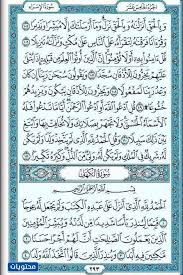 الجزء الخامس عشر
سورة الإسراء
وَبِالْحَقِّ أَنزَلْنَاهُ وَبِالْحَقِّ نَزَلَ وَمَا أَرْسَلْنَاكَ إِلَّا مُبَشِّرًا وَنَذِيرًا ١٠٥
وَقُرْءَانًا فَرَقْنَاهُ لِتَقْرَأَهُ عَلَى النَّاسِ عَلَىٰ مُكْثٍ وَنَزَّلْنَاهُ تَنزِيلًا ١٠٦
قُلْ ءَامِنُوا بِهِ أَوْ لَا تُؤْمِنُوا إِنَّ الَّذِينَ أُوتُوا الْعِلْمَ مِن قَبْلِهِ إِذَا يُتْلَىٰ
عَلَيْهِمْ يَخِرُّونَ لِلْأَذْقَانِ سُجَّدًا ١٠٧ وَيَقُولُونَ سُبْحَانَ رَبِّنَا إِن كَانَ
وَعْدُ رَبِّنَا لَمَفْعُولًا ١٠٨ وَيَخِرُّونَ لِلْأَذْقَانِ يَبْكُونَ وَيَزِيدُهُمْ
خُشُوعًا ١٠٩ قُلِ ادْعُوا اللَّهَ أَوِ ادْعُوا الرَّحْمَٰنَ أَيًّا مَّا تَدْعُوا فَلَهُ الْأَسْمَاءُ
الْحُسْنَىٰ وَلَا تَجْهَرْ بِصَلَاتِكَ وَلَا تُخَافِتْ بِهَا وَابْتَغِ بَيْنَ ذَٰلِكَ سَبِيلًا ١١٠
وَقُلِ الْحَمْدُ لِلَّهِ الَّذِي لَمْ يَتَّخِذْ وَلَدًا وَلَمْ يَكُن لَّهُ شَرِيكٌ فِي
الْمُلْكِ وَلَمْ يَكُن لَّهُ وَلِيٌّ مِّنَ الذُّلِّ وَكَبِّرْهُ تَكْبِيرًا ١١١
سورة الكهف
بِسْمِ اللَّهِ الرَّحْمَٰنِ الرَّحِيمِ
الْحَمْدُ لِلَّهِ الَّذِي أَنزَلَ عَلَىٰ عَبْدِهِ الْكِتَابَ وَلَمْ يَجْعَل لَّهُ عِوَجًا ١
قَيِّمًا لِّيُنذِرَ بَأْسًا شَدِيدًا مِّن لَّدُنْهُ وَيُبَشِّرَ الْمُؤْمِنِينَ
الَّذِينَ يَعْمَلُونَ الصَّالِحَاتِ أَنَّ لَهُمْ أَجْرًا حَسَنًا ٢
مَّاكِثِينَ فِيهِ أَبَدًا ٣ وَيُنذِرَ الَّذِينَ قَالُوا اتَّخَذَ اللَّهُ وَلَدًا ٤
٢٩٣
محتويات